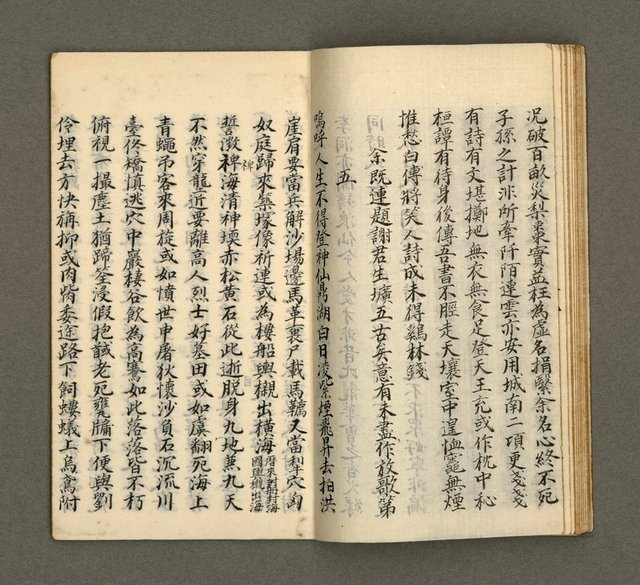 況破百畝災梨棗實益枉為虛名捐繫余名心終不死
子孫之計非所牽阡陌連雲亦安用城南二頃更戔戔
有詩有文堪擲地無衣無食足登天王充或作枕中祕
桓譚有待身後傳吾書不脛走天壤室中遑恤竈無煙
推愁白傅將笑人詩成未得雞林錢
同時余既連題謝君生壙五古矣意有未盡作放歌第
五
嗚呼人生不得登神仙鼎湖白日凌紫煙飛昇去拍洪
崖肩要當兵解沙場邊馬革裹尸載馬韉又當犁穴匈
奴庭歸來築塚像祈連或為樓船輿櫬出橫海
誓激裨海清神壞赤松黃石從此逝脫身九地兼九天
不然穿龍近要離高人烈士好墓田或如虞翻死海上
青蠅吊客來周旋或如憤世申屠狄懷沙負石沉流川
臺佟矯慎逃穴中巖棲谷飲為高騫如此落落皆不朽
俯視一撮塵土猶蹄筌浸假抱誠老死甕牖下便與劉
伶埋去方快旃抑或肉胔委途路下飼螻蟻上烏鳶附